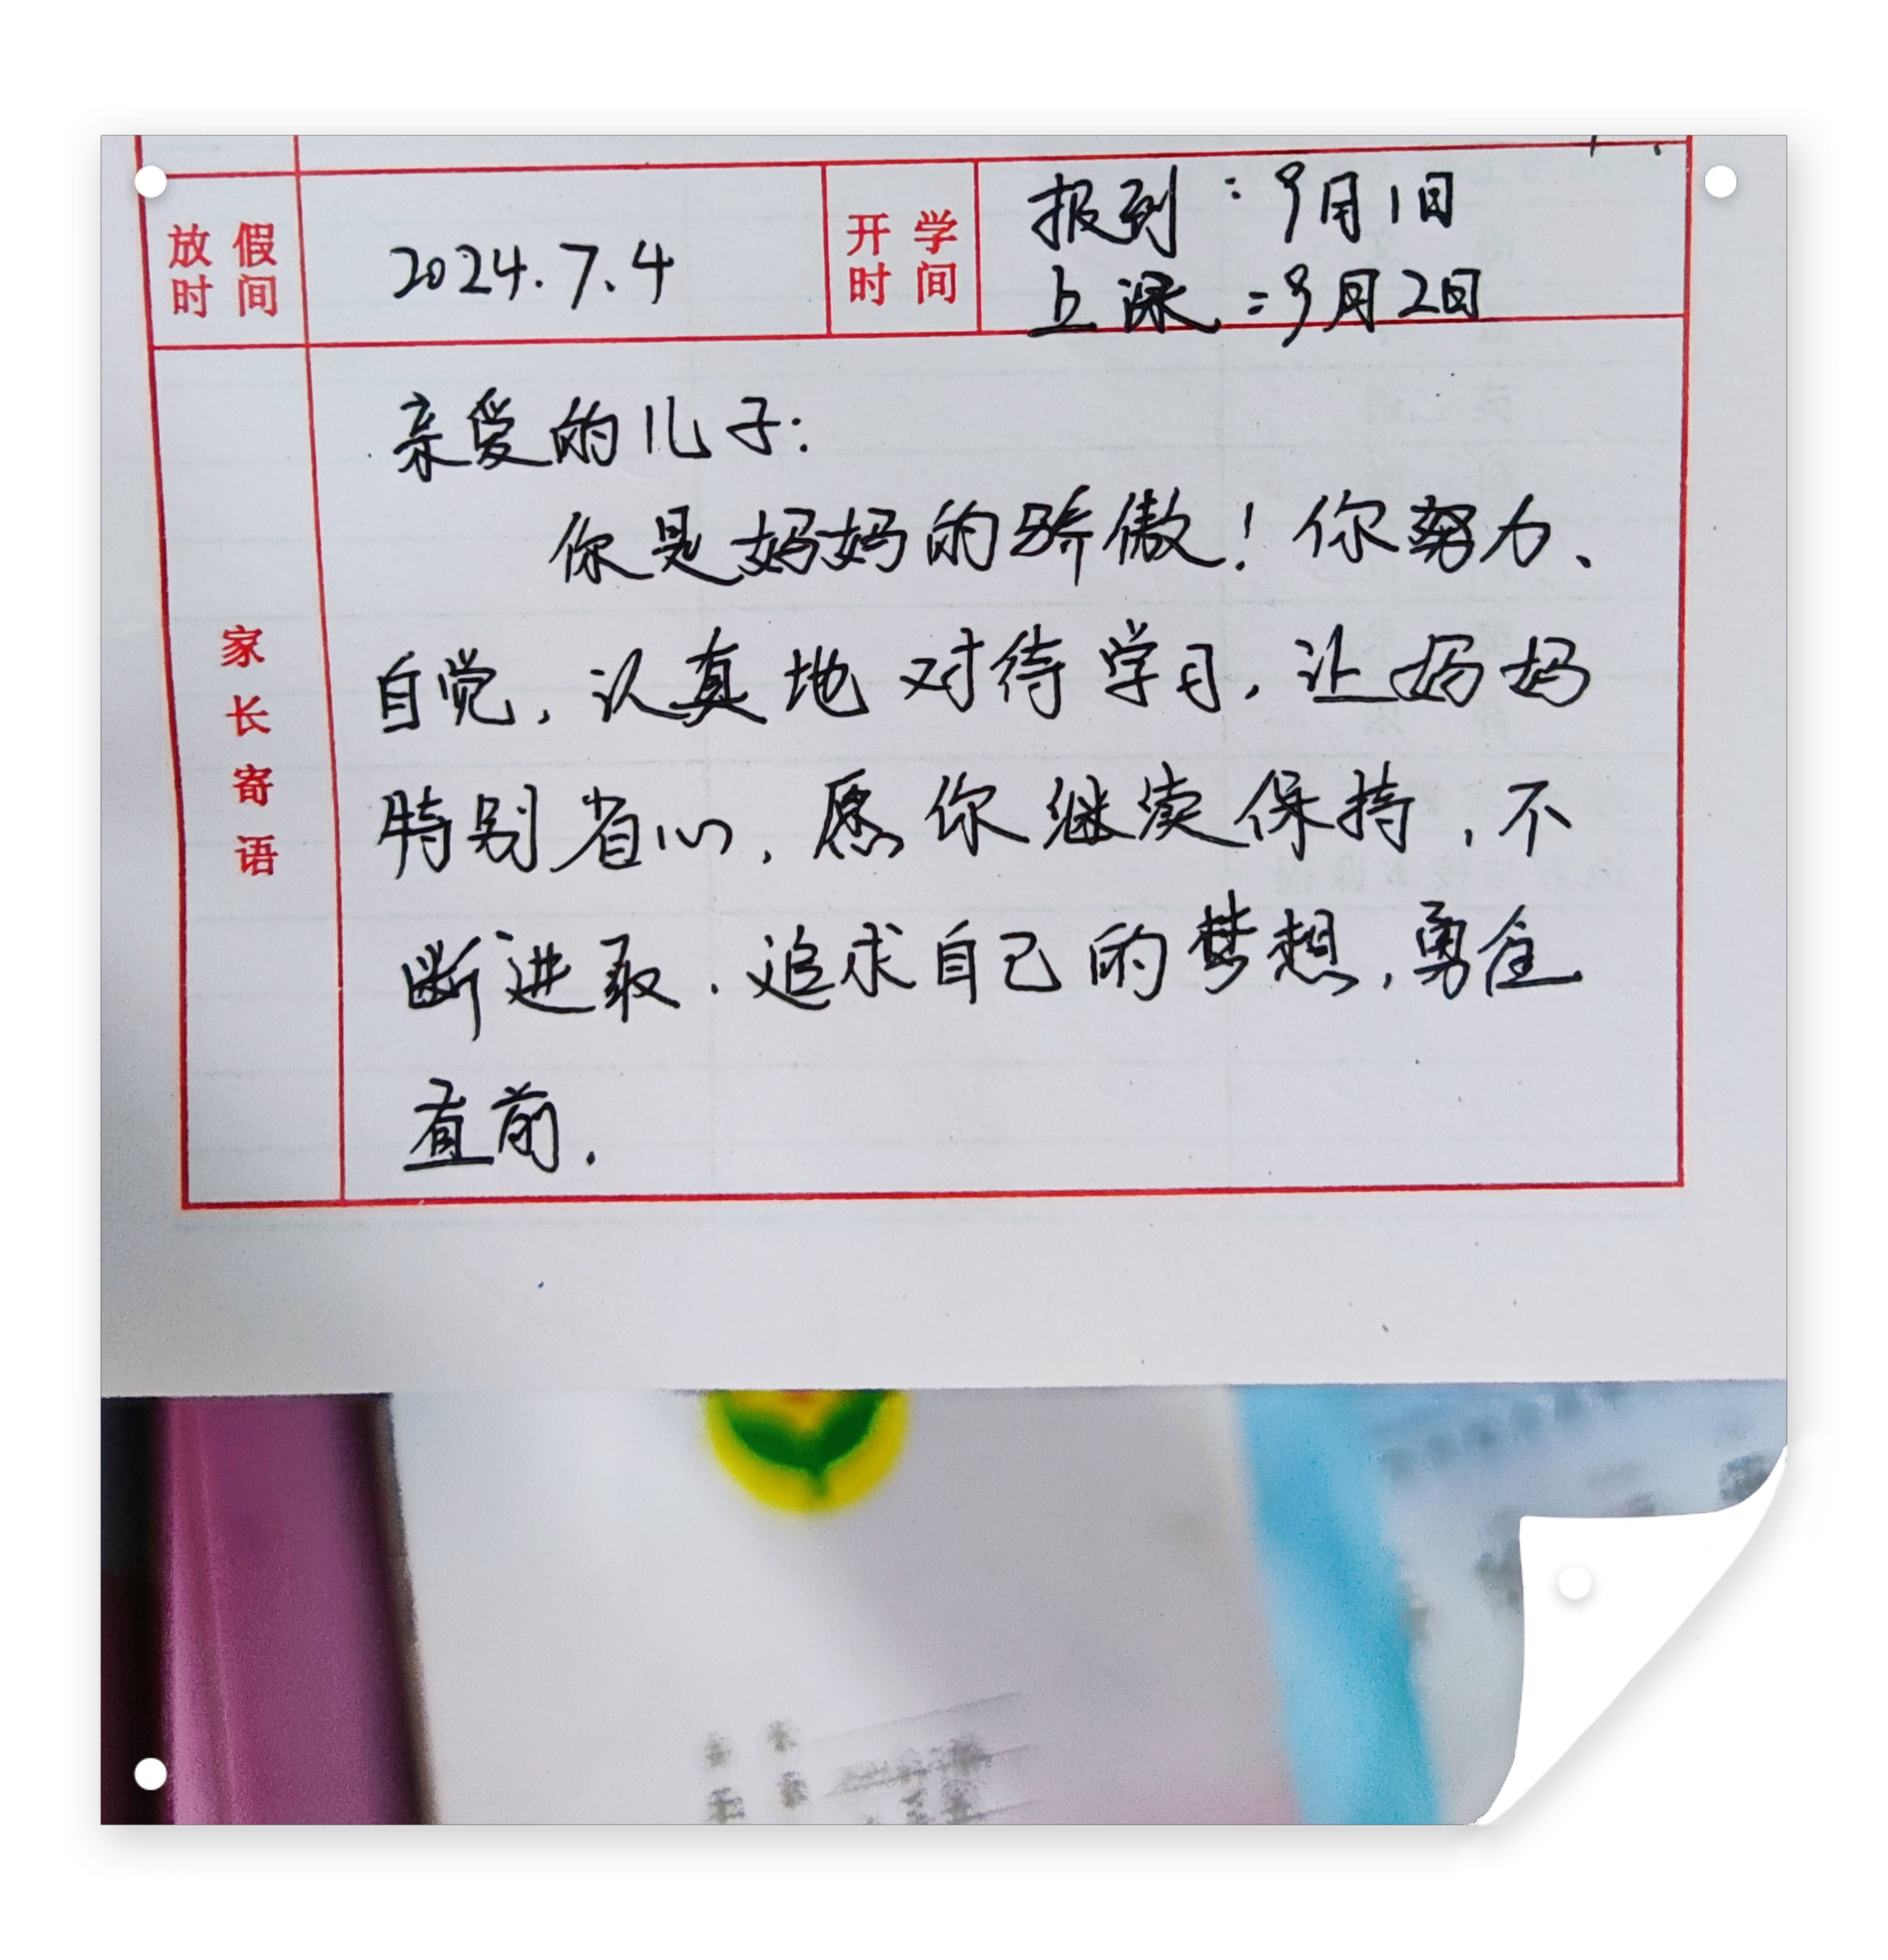 放假时间 2024.7.4 开学时间 报到：9月1日
上课：9月2日
家长寄语
亲爱的儿子：
你是妈妈的骄傲！你努力、
自觉，认真地对待学习，让妈妈
特别省心，愿你继续保持，不
断进取．追求自己的梦想，勇往
直前．